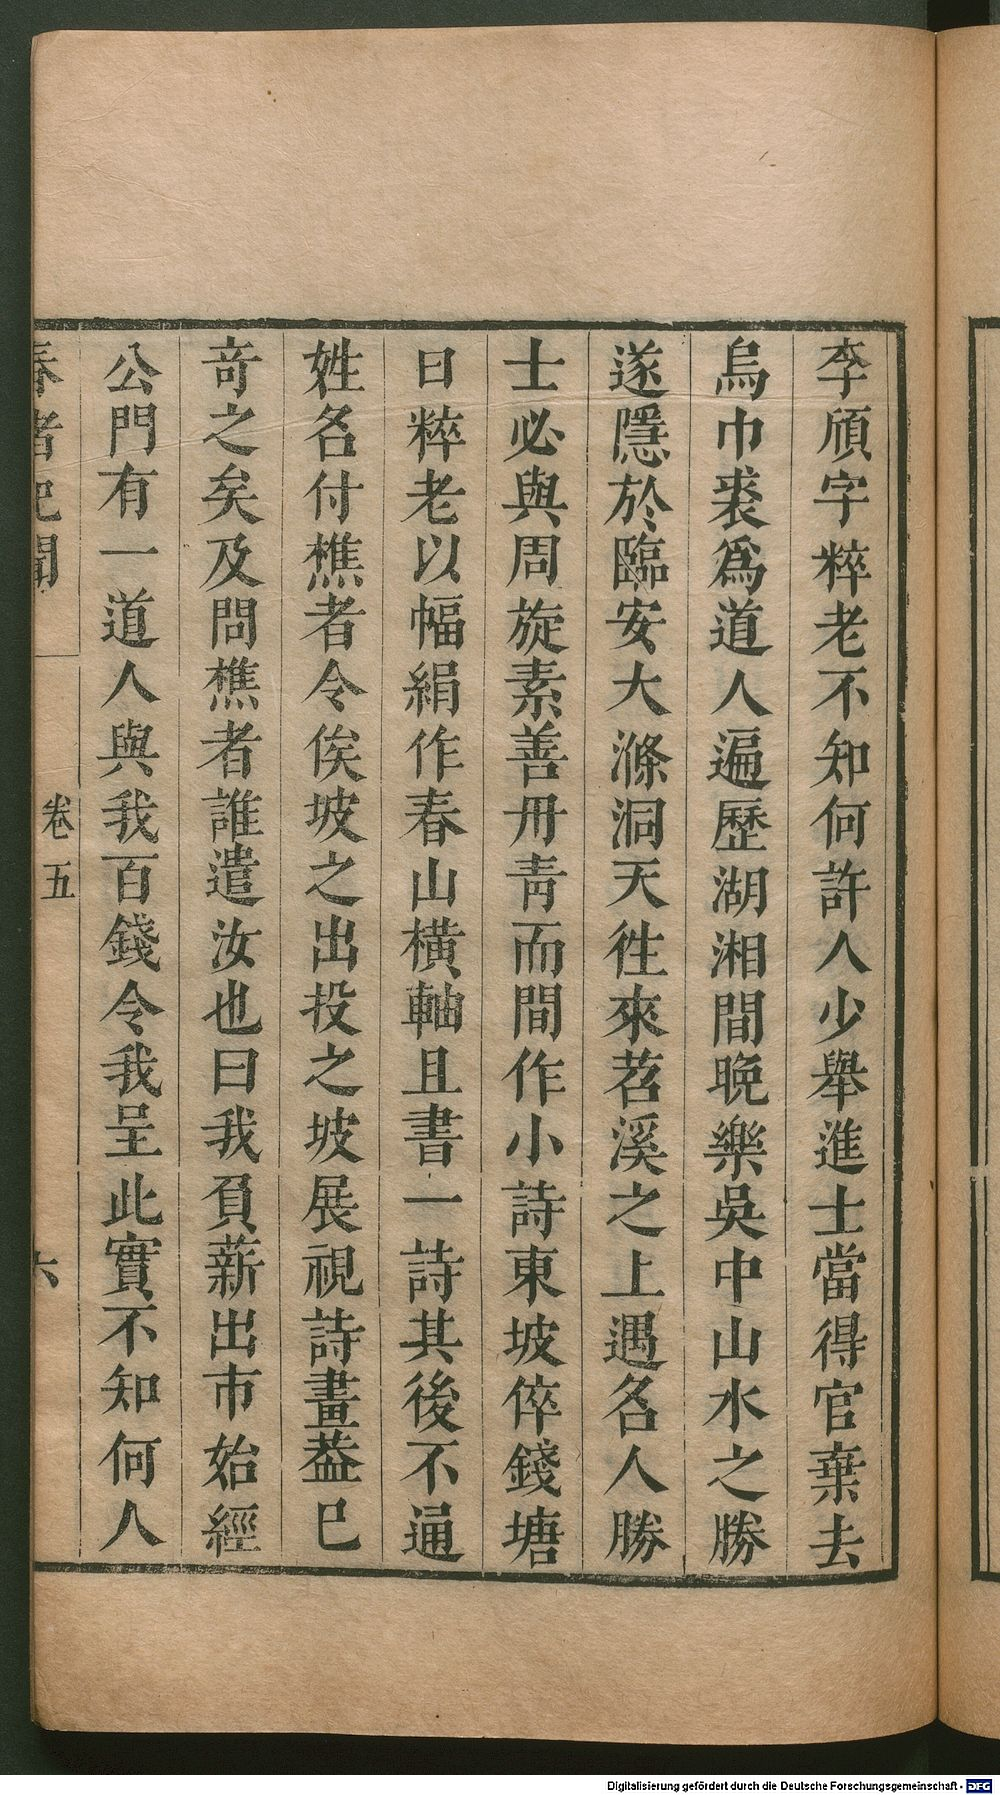 李頎字粹老不知何許人少舉進士當得官棄去
烏巾裘爲道人遍歷湖湘間晚樂吳中山水之勝
遂隱於臨安大滌洞天徃來苕溪之上遇名人勝
士必與周旋素善丹靑而間作小詩東坡倅錢塘
日粹老以幅絹作春山橫軸且書一詩其後不通
姓名付樵者令俟坡之出投之坡展視詩畫葢已
奇之矣及問樵者誰遣汝也曰我負薪出市始經
公門有一道人與我百錢令我呈此實不知何人
春渚紀聞 卷五 六
Digitalisierung gefördert durch die Deutsche Forschungsgemeinschaft - DFG